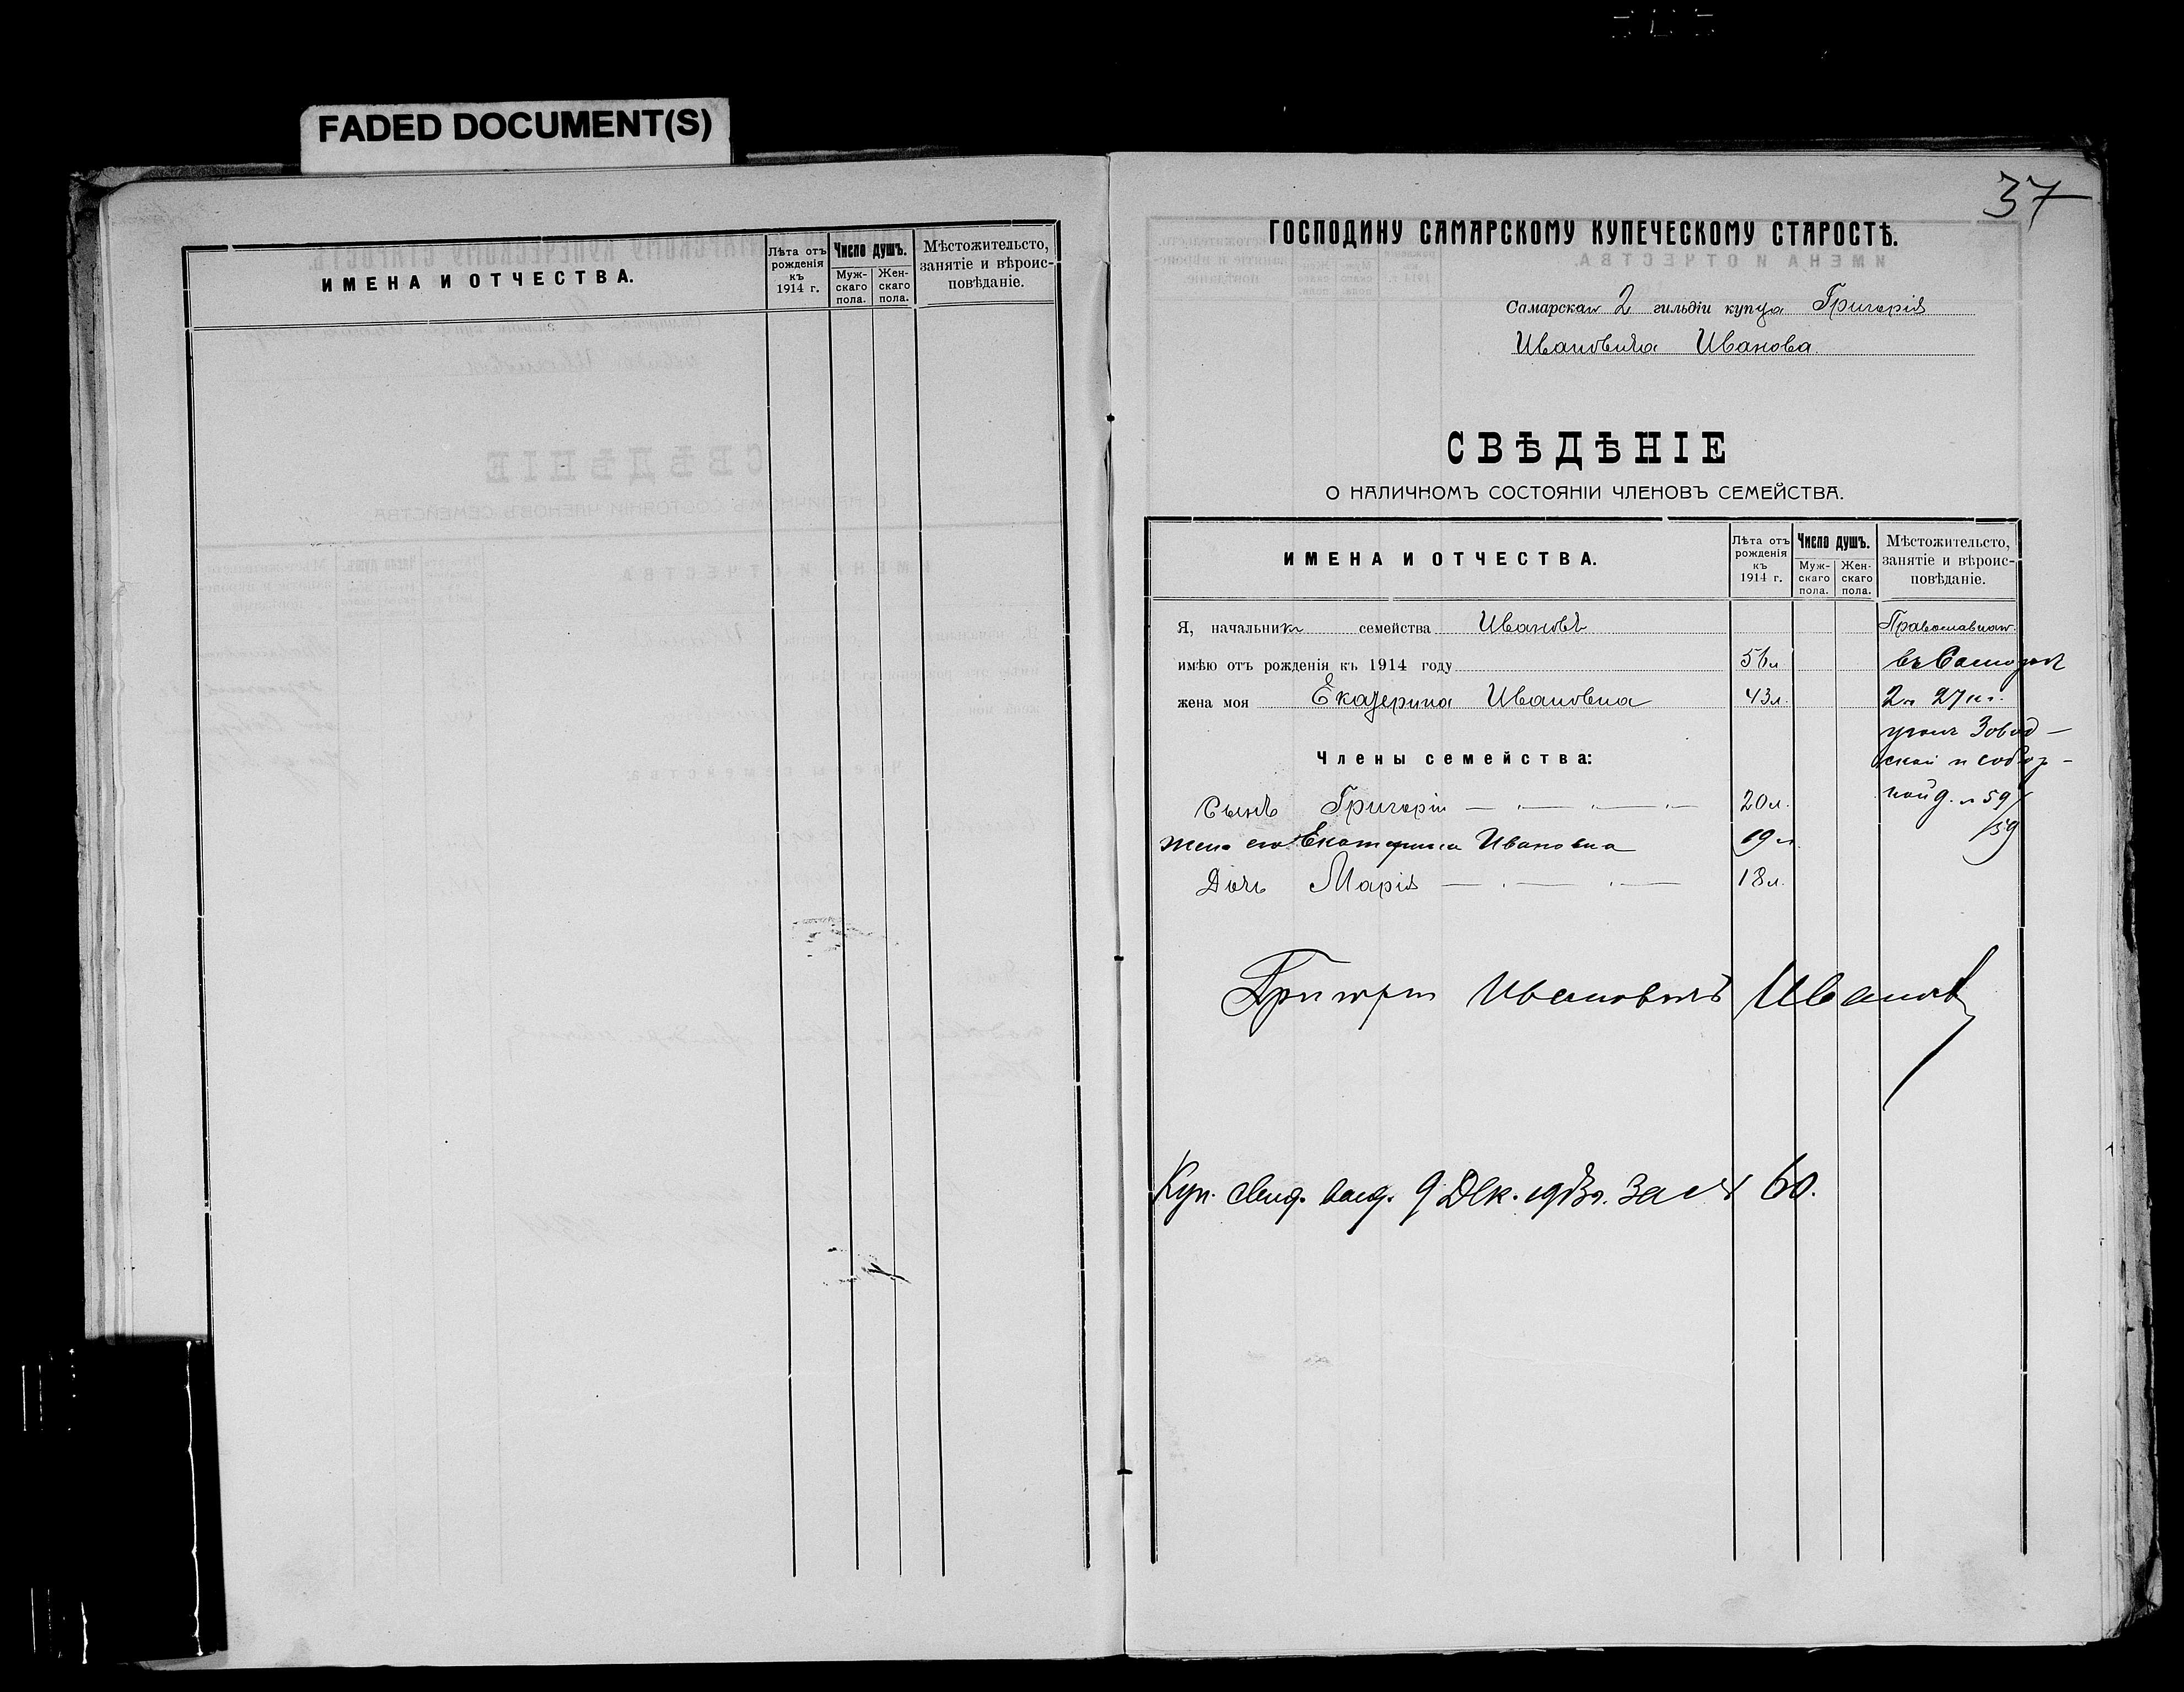 FADED DOCUMENT(S)
ИМЕНА И ОТЧЕСТВА.
Лѣта отъ рожденія къ 1914 г.
Число душъ.
Муж-скаго пола.
Жен-скаго пола.
Мѣстожительсто, занятіе и вѣроис-повѣданіе.
37
ГОСПОДИНУ САМАРСКОМУ КУПЕЧЕСКОМУ СТАРОСТѢ.
Самарскаго 2 гильдіи купца Григорія
Ивановича Иванова.
СВѢДѢНІЕ
О НАЛИЧНОМЪ СОСТОЯНІИ ЧЛЕНОВЪ СЕМЕЙСТВА.
ИМЕНА И ОТЧЕСТВА.
Лѣта отъ рожденія къ 1914 г.
Число душъ.
Муж-скаго пола.
Жен-скаго пола.
Мѣстожительсто, занятіе и вѣроис-повѣданіе.
Я, начальникъ семейства Ивановъ Православнаго
имѣю отъ рожденія къ 1914 году 56л въ
жена моя Екатерина Ивановна 43л. 2й 27
уголъ Завод-
Члены семейства: ской и собор-
Сынъ Григорій 20л. ной д. № 59/
Жена его Екатерина Ивановна 19л. /59
Дочь Марія 18л.
Григорій Ивановичъ Ивановъ
Куп. свид. выд. 9 Дек. 1913г. за № 60.